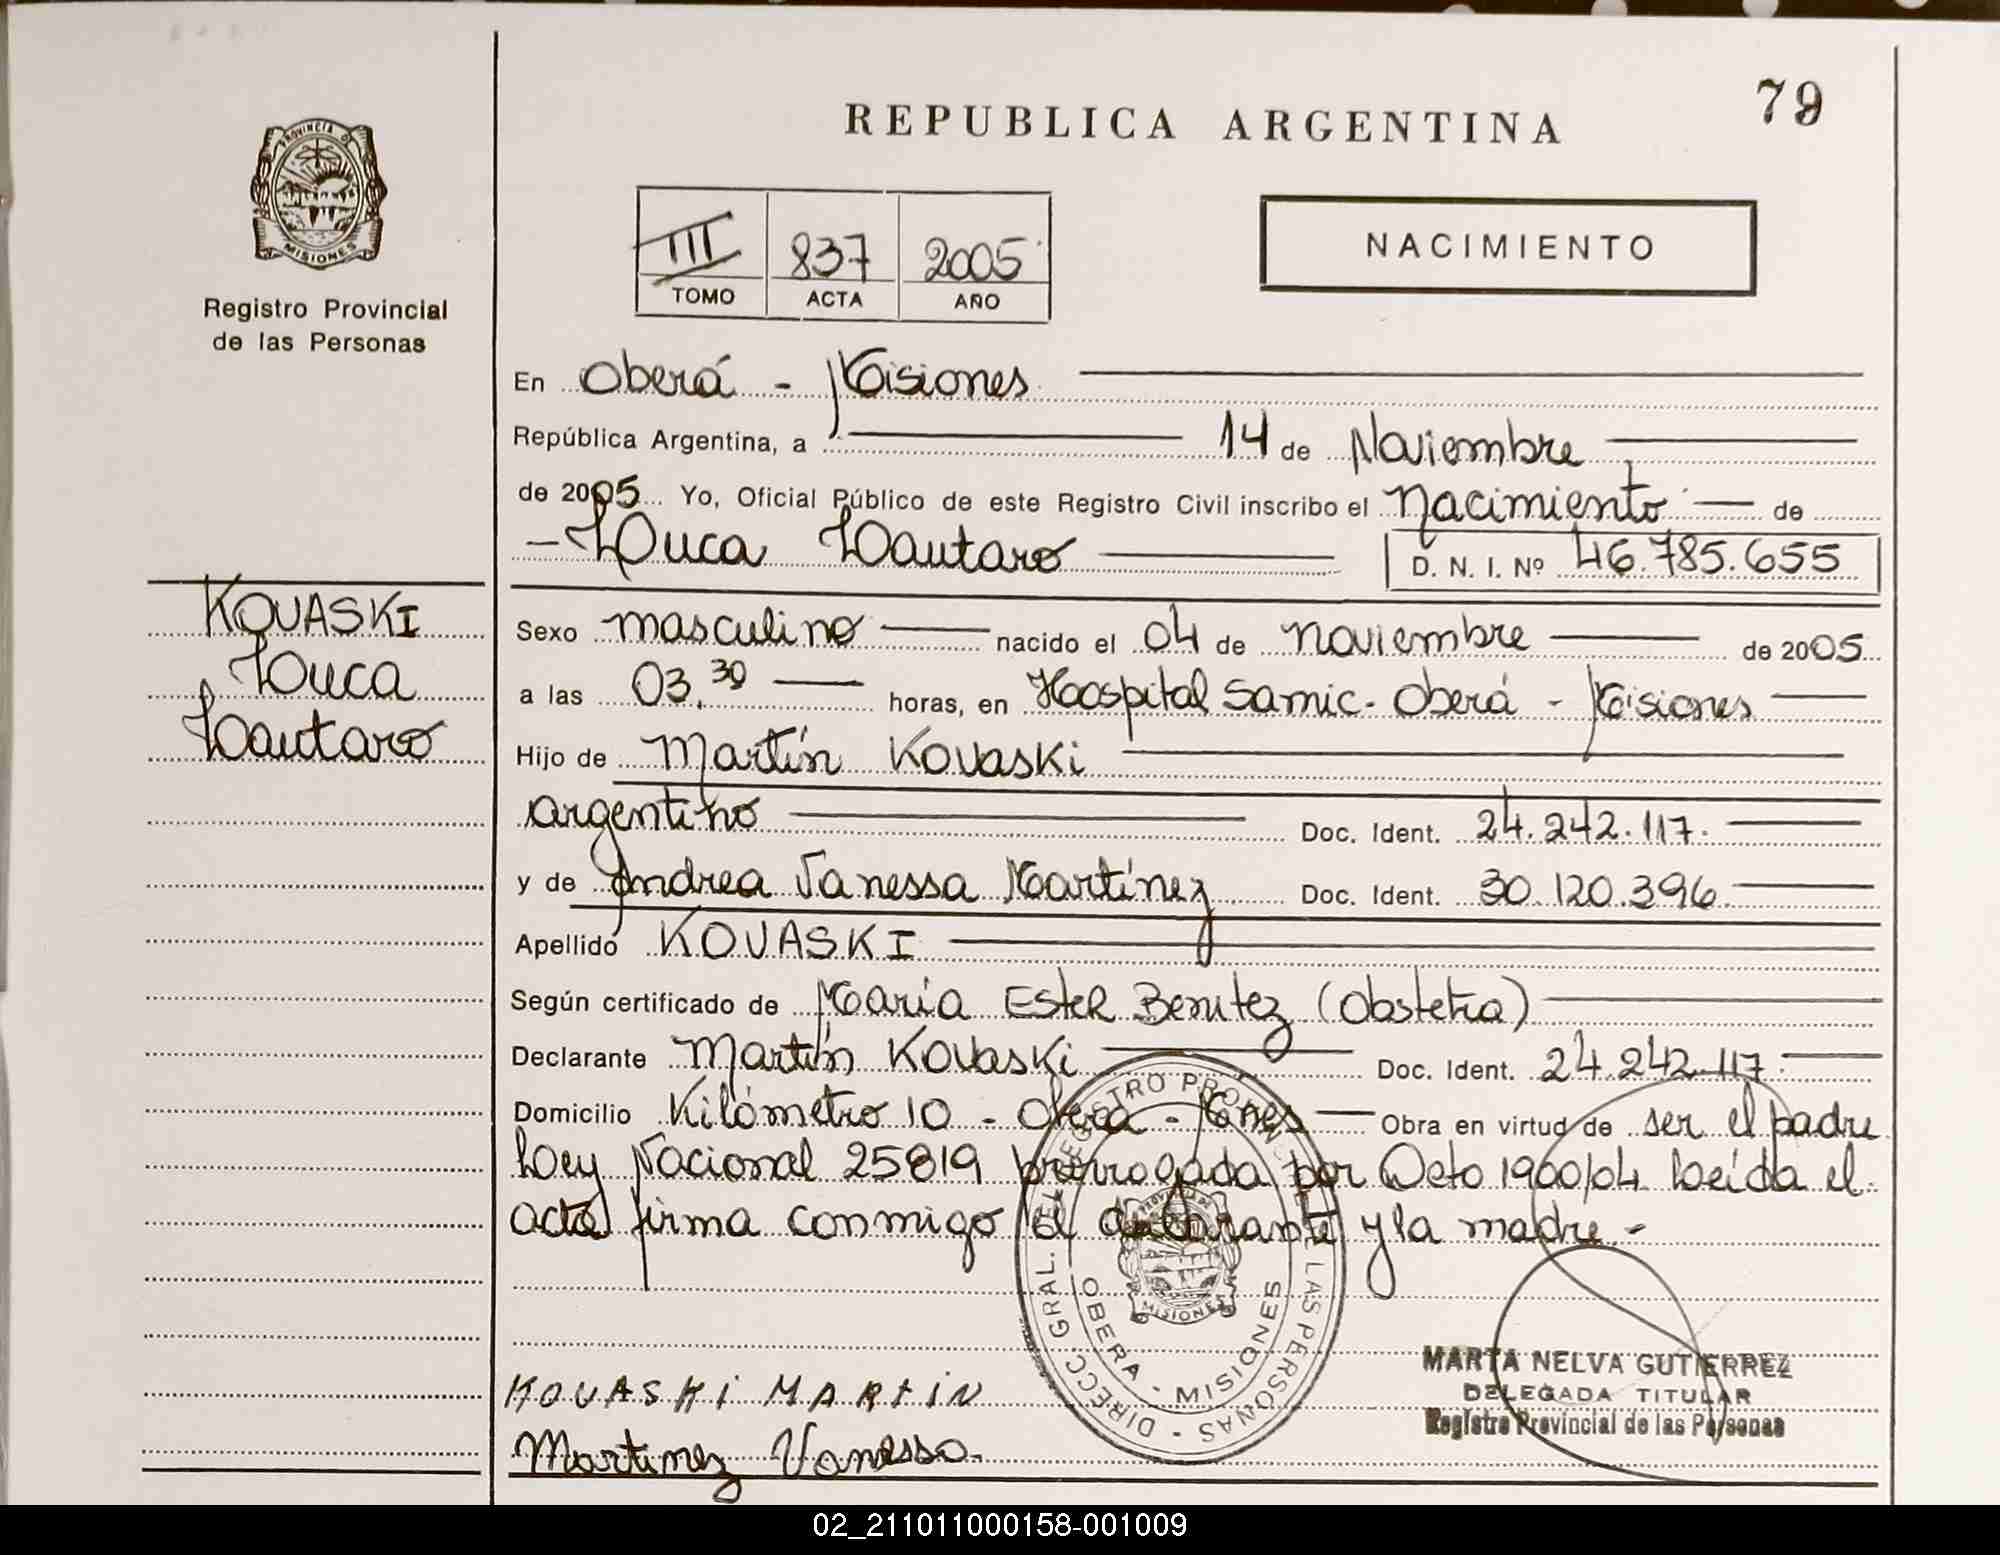 79
REPUBLICA ARGENTINA
PROVINCIA DE
MISIONES
Registro Provincial
de las Personas
III 837 2005
TOMO ACTA AÑO
NACIMIENTO
En Oberá - Misiones
República Argentina, a 14 de Noviembre
de 2005 Yo, Oficial Público de este Registro Civil inscribo el Nacimiento de
- Luca Lautaro
D. N. I. Nº 46.785.655
KOVASKI
Luca
Lautaro
Sexo masculino nacido el 04 de noviembre de 2005
a las 03.30 horas, en Hospital Samic. Oberá - Misiones
Hijo de Martín Kovaski
argentino Doc. Ident. 24.242.117.
y de Andrea Vanessa Martínez Doc. Ident. 30.120.396.
Apellido KOVASKI
Según certificado de María Ester Benitez (Obstetra)
Declarante Martín Kovaski Doc. Ident. 24.242.117.
Domicilio Kilómetro 10 - Oberá - Mnes Obra en virtud de ser el padre
Ley Nacional 25819 prorrogada por Dcto 1960/04 Leída el
acta firma conmigo el declarante y la madre.-
DIRECC. GRAL. DEL REGISTRO PROVINCIAL DE LAS PERSONAS -
OBERA - MISIONES
MISIONES
MARTA NELVA GUTIERREZ
DELEGADA TITULAR
Registro Provincial de las Personas
KOVASKI MARTIN
Martinez Vanessa.
02_211011000158-001009